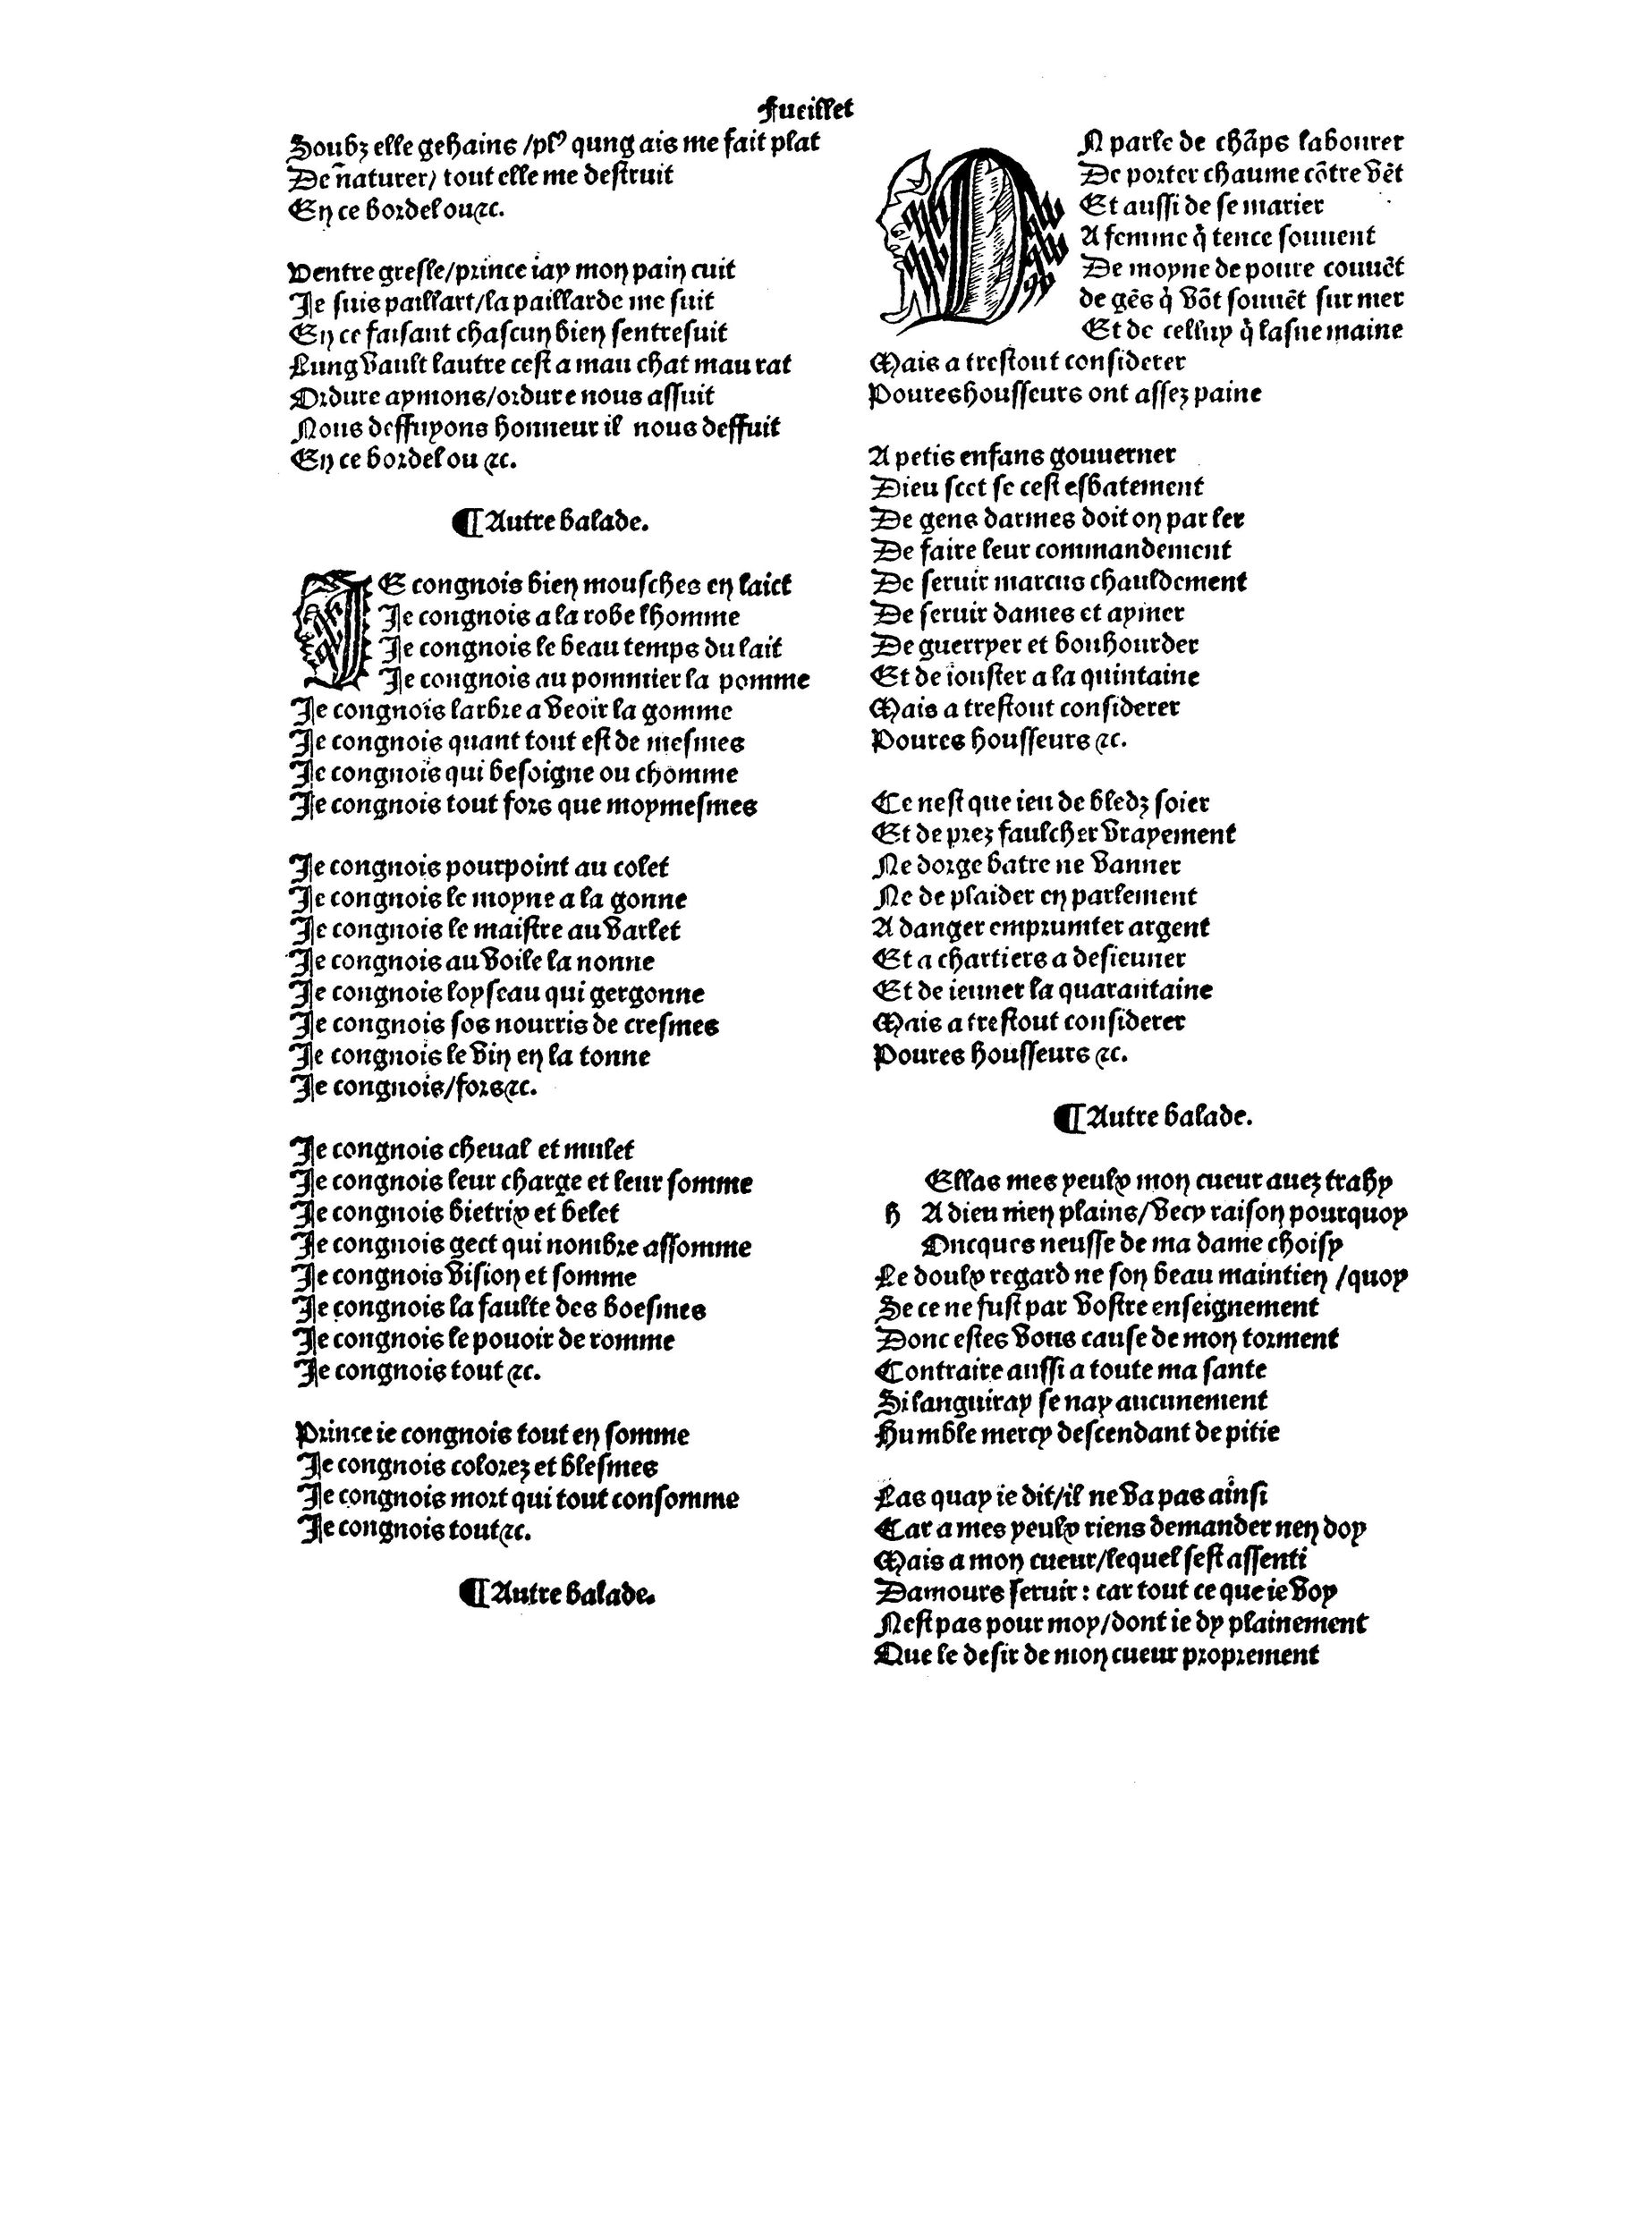 Fueillet
Soubz elle gehains /plꝰ qung ais me fait plat
De ñaturer/ tout elle me destruit
En ce bordel ou⁊c.
Ventre gresle/prince iay mon pain cuit
Je suis paillart/la paillarde me suit
En ce faisant chascun bien sentresuit
Lung vault lautre cest a mau chat mau rat
Ordure aymons/ordure nous assuit
Nous deffuyons honneur il nous deffuit
En ce bordel ou ⁊c.
¶ Autre balade.
JE congnois bien mousches en laict
Je congnois a la robe lhomme
Je congnois le beau temps du lait
Je congnois au pommier la pomme
Je congnois larbre a veoir la gomme
Je congnois quant tout est de mesmes
Je congnois qui besoigne ou chomme
Je congnois tout fors que moymesmes
Je congnois pourpoint au colet
Je congnois le moyne a la gonne
Je congnois le maistre au varlet
Je congnois au voile la nonne
Je congnois loyseau qui gergonne
Je congnois sos nourris de cresmes
Je congnois le vin en la tonne
Je congnois/fors⁊c.
Je congnois cheual et mulet
Je congnois leur charge et leur somme
Je congnois bietrix et belet
Je congnois gect qui nombre assomme
Je congnois vision et somme
Je congnois la faulte des boesmes
Je congnois le pouoir de romme
Je congnois tout ⁊c.
Prince ie congnois tout en somme
Je congnois colorez et blesmes
Je congnois mort qui tout consomme
Je congnois tout⁊c.
¶ Autre balade.
ON parle de chãps labourer
De porter chaume cõtre vẽt
Et aussi de se marier
A femme q̃ tence souuent
De moyne de poure couuẽt
de gẽs q̃ võt souuẽt sur mer
Et de celluy q̃ lasne maine
Mais a trestout considerer
Poureshousseurs ont assez paine
A petis enfans gouuerner
Dieu scet se cest esbatement
De gens darmes doit on parler
De faire leur commandement
De seruir marcus chauldement
De seruir dames et aymer
De guerryer et bouhourder
Et de iouster a la quintaine
Mais a trestout considerer
Poures housseurs ⁊c.
Ce nest que ieu de bledz soier
Et de prez faulcher vrayement
Ne dorge batre ne vanner
Ne de plaider en parlement
A danger emprumter argent
Et a chartiers a desieuner
Et de ieuner la quarantaine
Mais a trestout considerer
Poures housseurs ⁊c.
¶ Autre balade.
hEllas mes yeulx mon cueur auez trahy
A dieu men plains/vecy raison pourquoy
Oncques neusse de ma dame choisy
Le doulx regard ne son beau maintien /quoy
Se ce ne fust par vostre enseignement
Donc estes vous cause de mon torment
Contraire aussi a toute ma sante
Si languiray se nay aucunement
Humble mercy descendant de pitie
Las quay ie dit/il ne va pas ainsi
Car a mes yeulx riens demander nen doy
Mais a mon cueur/lequel sest assenti
Damours seruir : car tout ce que ie voy
Nest pas pour moy/dont ie dy plainement
Que le desir de mon cueur proprement